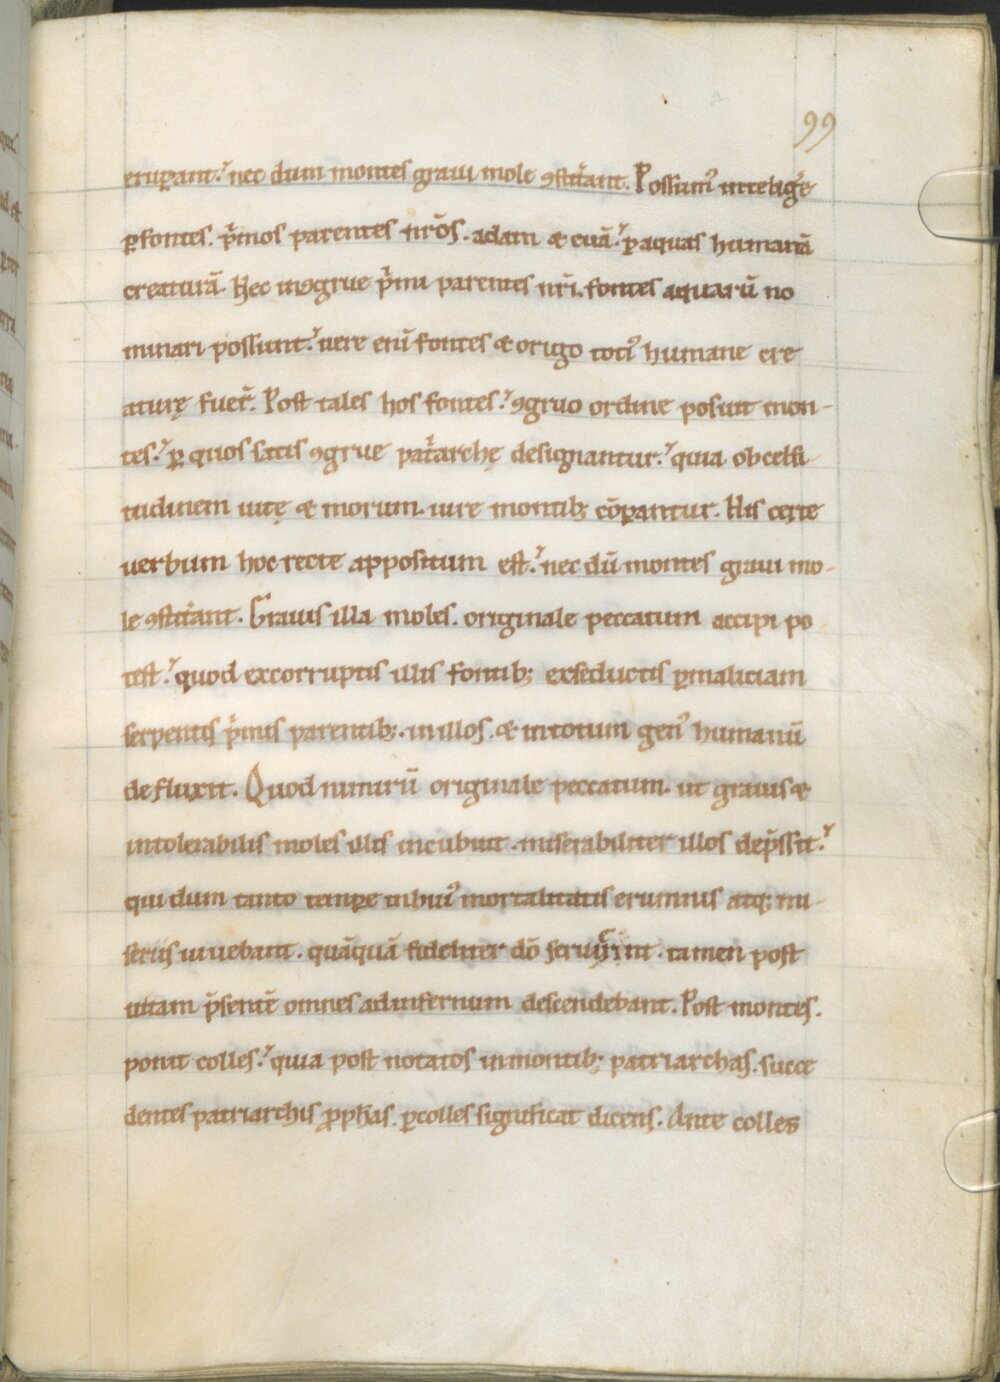 99
erupant. nec dum montes graui mole ꝯstit᷑ant. Possum᷒ intelig̾e
ꝑ fontes. p̾mos parentes nr̄os. adam & euā. ꝑ aquas humanā
creaturā. Nec inꝯgrue p̾mi parentes nr̄i. fontes aquarū no
minari possunt. uere eni᷑ fontes & origo toti᷒ humane cre
aturę fuer̄. Post tales hos fontes. ꝯgruo ordine posuit mon-
tes. ꝑ quos satis ꝯgrue pat᷑archę designantur. quia ob celsi-
tudinem uitę & morum. iure montib; cōꝑantur. His certe
uerbum hoc recte appositum est. nec dū montes graui mo-
le ꝯstit᷑ant. Grauis illa moles. originale peccatum accipi po
test. quod ex corruptis illis fontib; ex seductis ꝑ maliciam
serpentis p̾mis parentib;. in illos. & in totum gen᷒ humanū
defluxit. Quod nimirū originale peccatum. ut grauis &
intolerabilis moles illis incubuit. miserabiliter illos dep̄ssit.
qui dum tanto temꝑe in hui᷒ mortalitatis erumnis atq; mi-
seriis uiuebant. quāquā fideliter dō
tamen post
uitam p̄sentē omnes ad infernum descendebant. Post montes.
ponit colles. quia post notatos in montib; patriarchas. succe
dentes patriarchis ꝓph̄as. ꝑ colles significat dicens. Ante colles